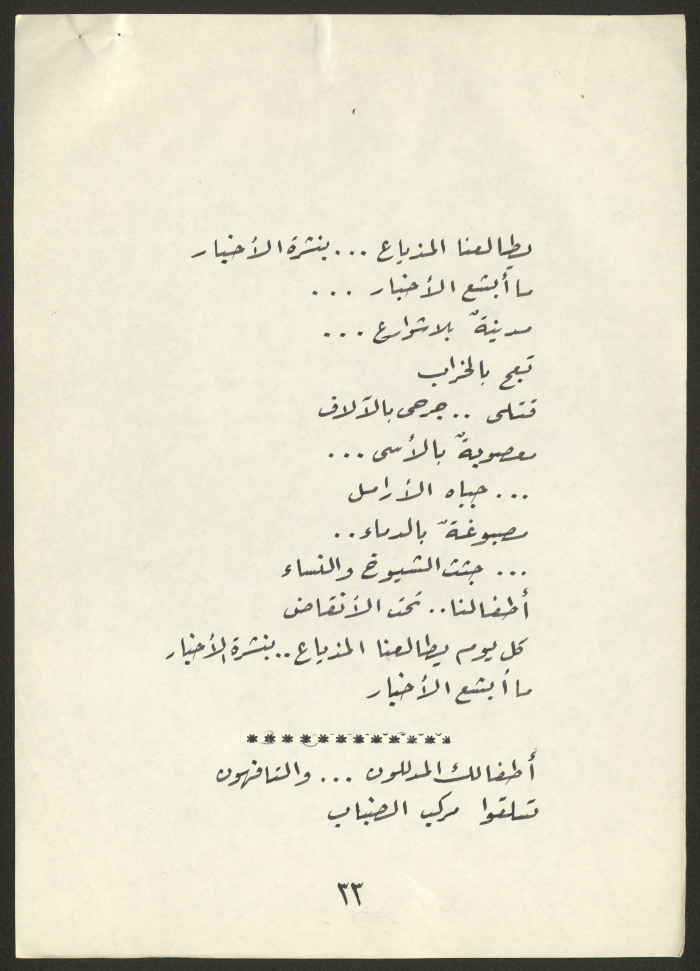 يطالعنا المذياع ... بنشرة الأخبار
ما أبشع الأخبار ...
مدينةٌ بلا شوارع ...
تعج بالخراب
قتلى .. جرحى بالآلاف
معصوبةٌ بالأسى ...
... جباه الأرامل
مصبوغةٌ بالدماء ..
... جثث الشيوخ والنساء
أطفالنا .. تحت الأنقاض
كل يوم يطالعنا المذياع .. بنشرة الأخبار
ما أبشع الأخبار
************
أطفالك المدللون ... والتافهون
تسلقوا مركب الضباب
٣٣